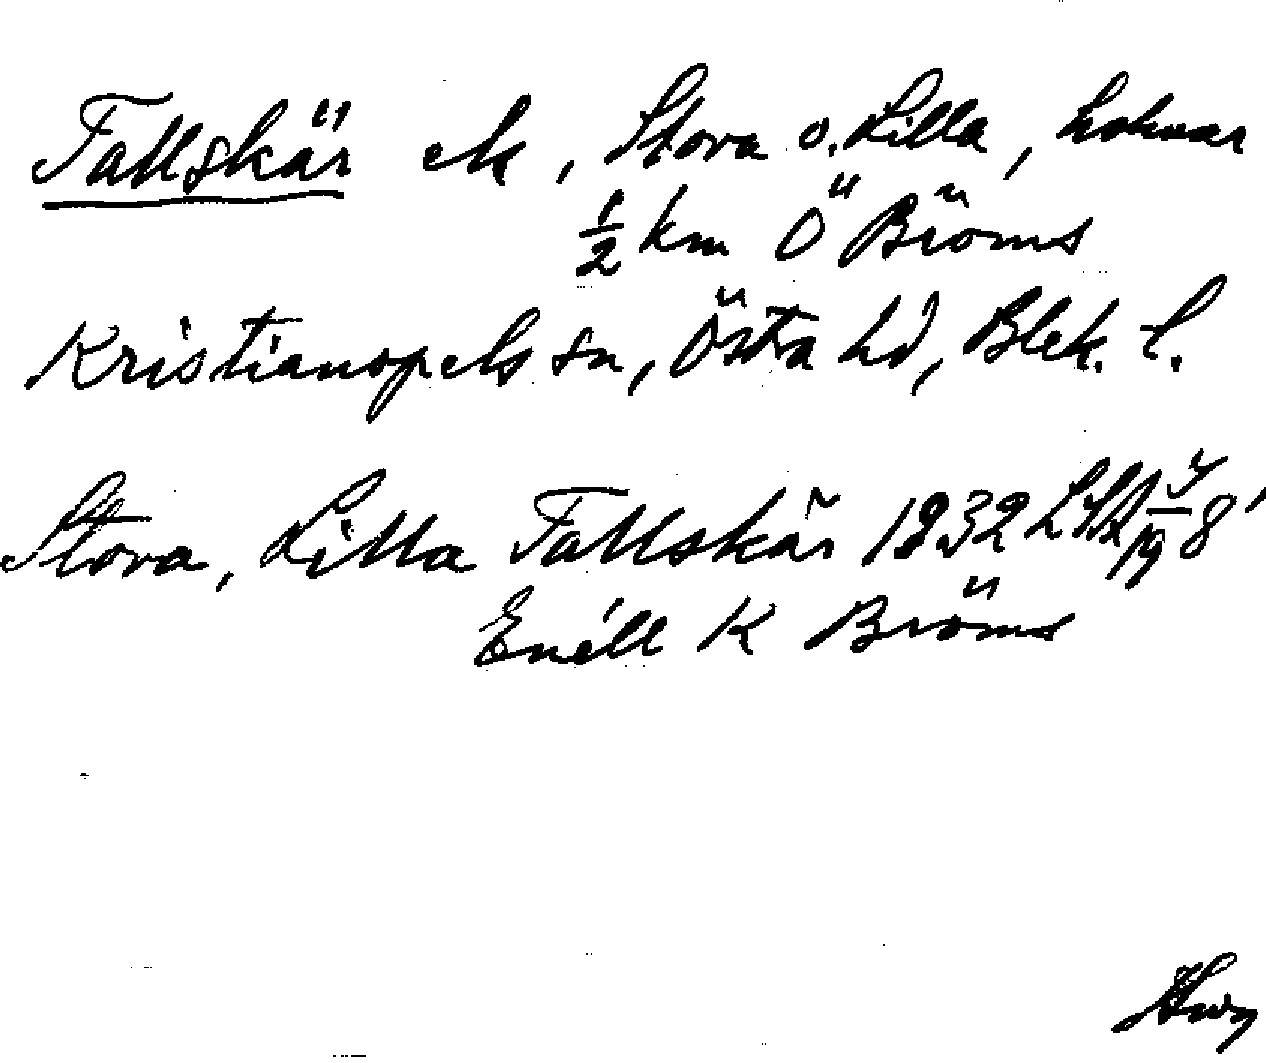 Tallskär ek, Stora o. Lilla, holmar
½ km Ö Bröms
Kristianopels sn, Östra hd, Blek. l.
Stora, Lilla Tallskär 1832 LSA
Enéll K Bröms